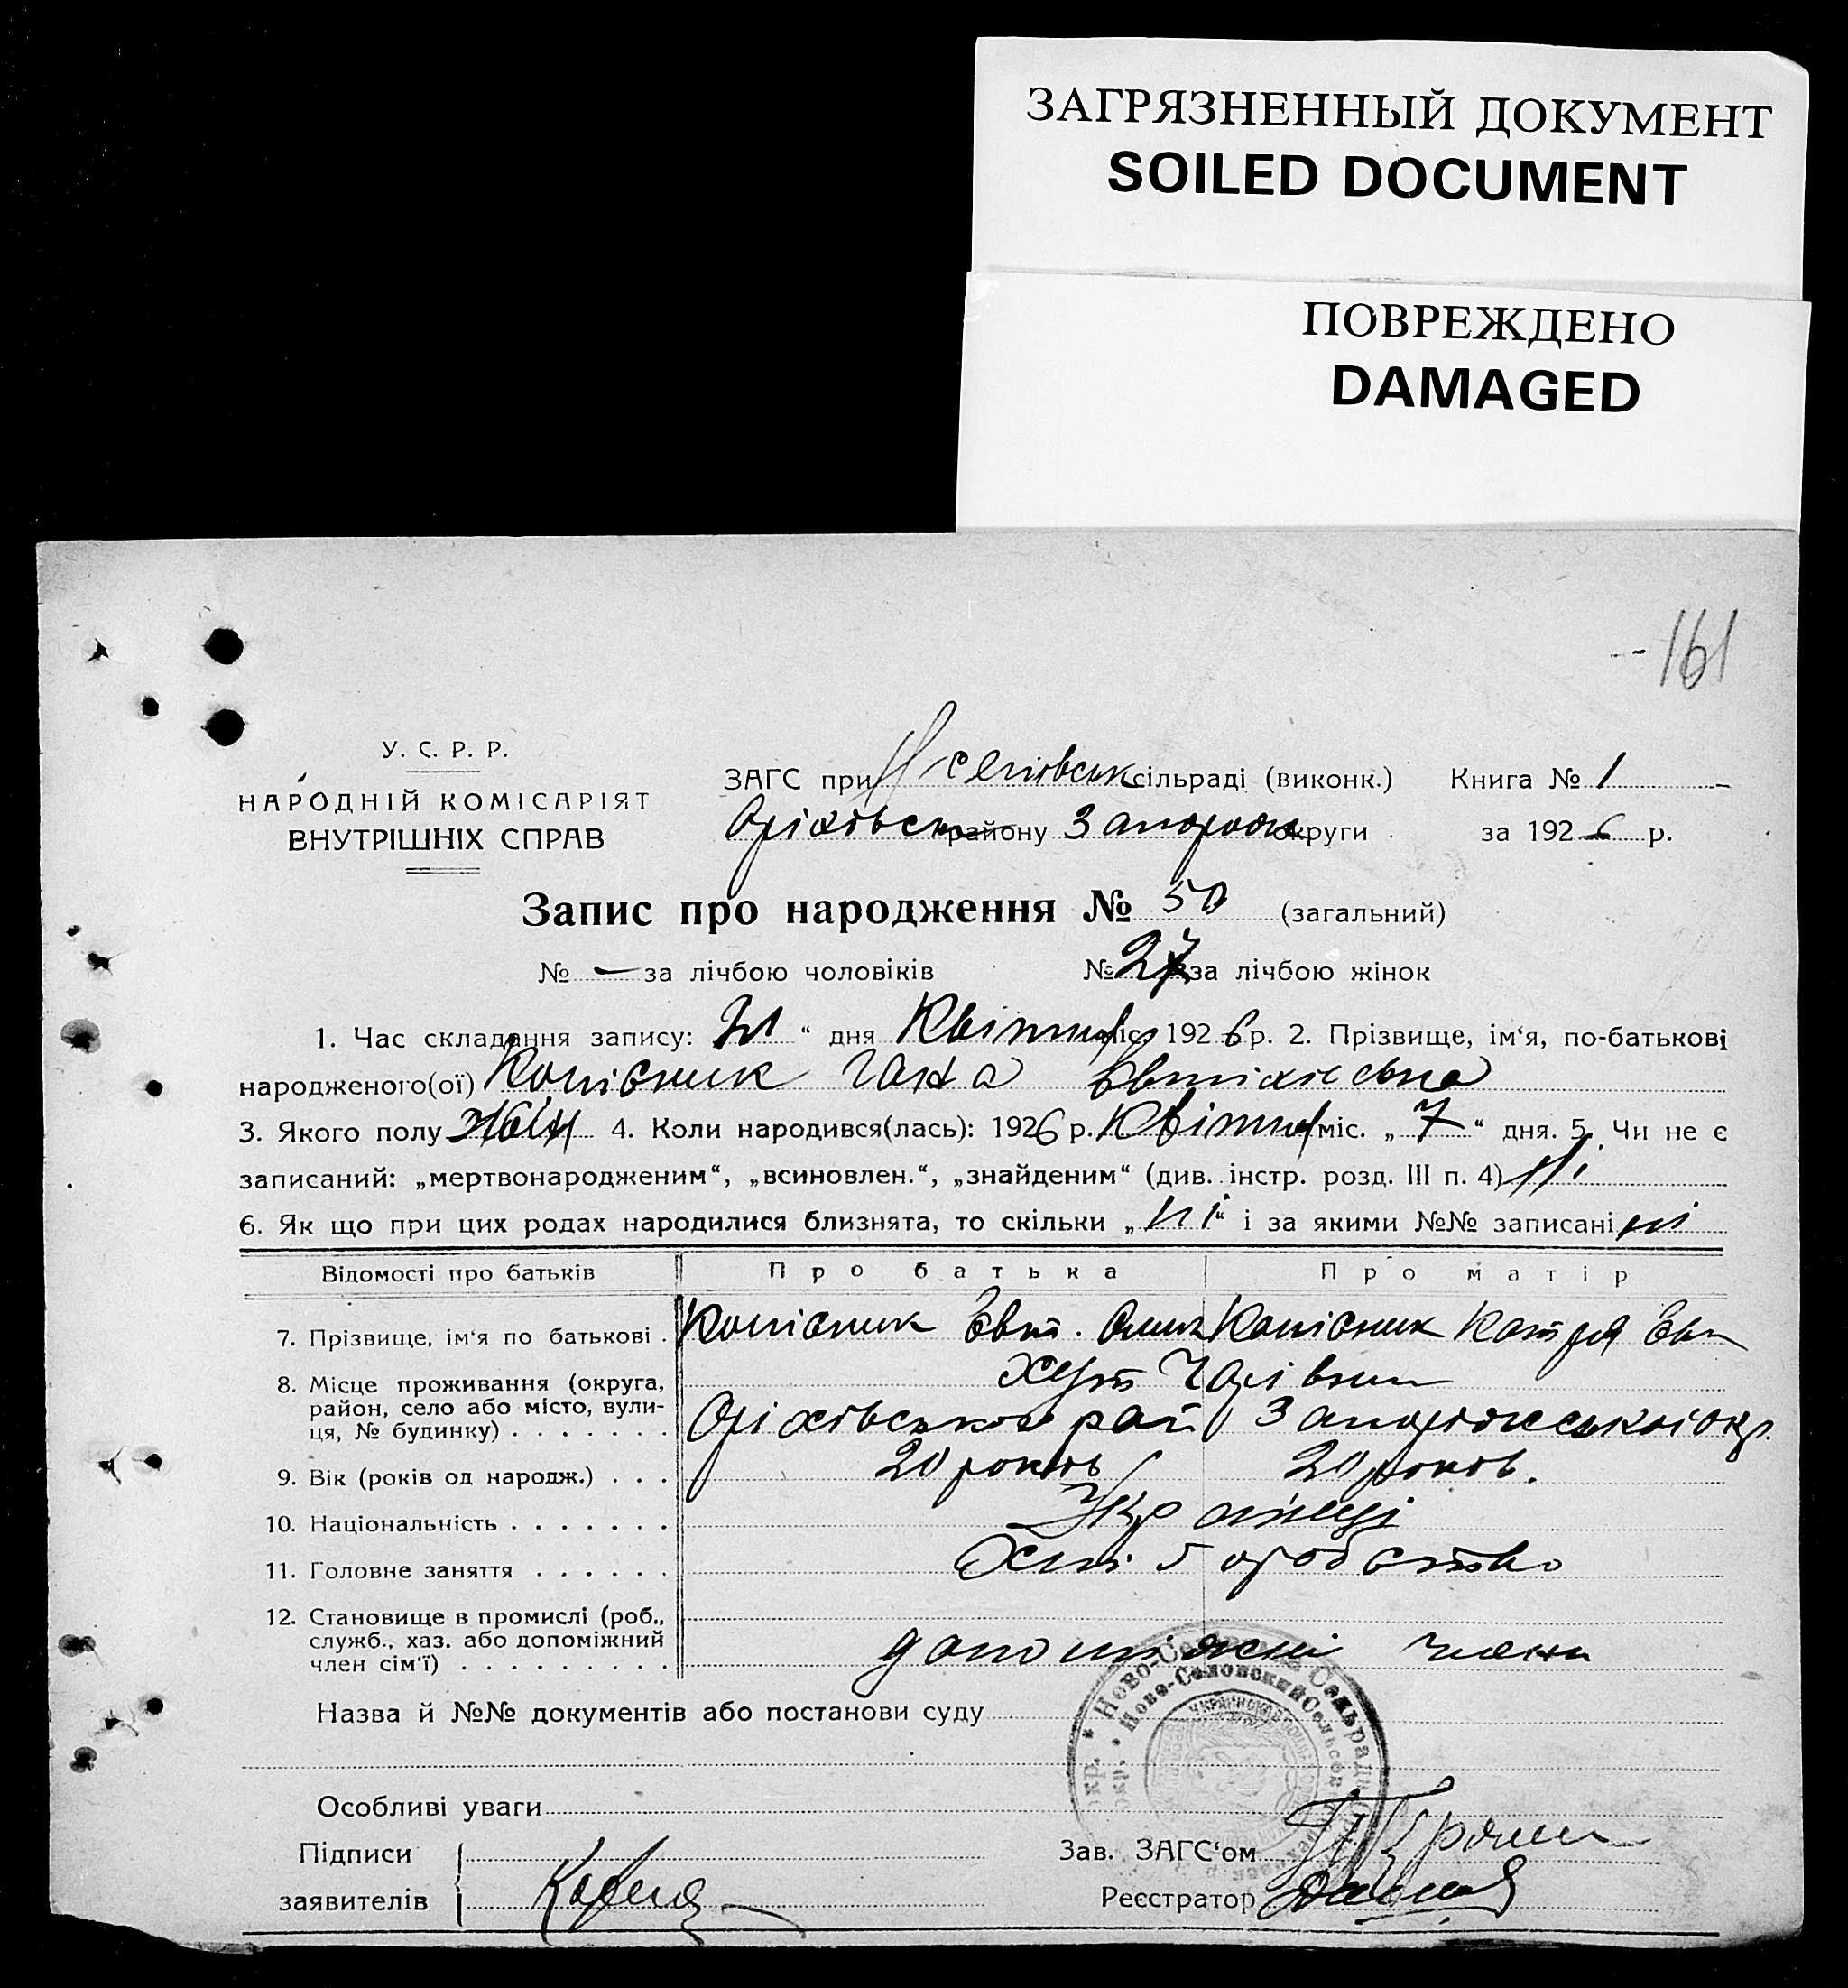 ЗАГРЯЗНЕННЫЙ ДОКУМЕНТ
SOILED DOCUMENT
ПОВРЕЖДЕНО
DAMAGED
161
У. С. Р. Р.
НАРОДНІЙ КОМІСАРІЯТ
ВНУТРІШНІХ СПРАВ
ЗАГС при Н селівськ сільраді (виконк.) Книга № 1
Оріхівськ району Запорож округи за 1926 р.
Запис про народження № 50 (загальний)
№ — за лічбою чоловіків № 27 за лічбою жінок
1. Час складання запису: “ дня Квітня міс. 1926 р. 2. Прізвище, ім‘я, по-батькові
народженого(ої) Галя Евтихіевна
3. Якого полу жін 4. Коли народився(лась): 1926 р. Квітня міс. „ 7 “ дня. 5. Чи не є
записаний: „мертвонародженим“, „всиновлен.“, „знайденим“ (див. інстр. розд. III п. 4) Ні
6. Як що при цих родах народилися близнята, то скільки „ ні “ і за якими №№ записані ні
Відомості про батьків Про батька Про матір
7. Прізвище, ім‘я по батькові . Євт. Катря Евт
8. Місце проживання (округа, район, село або місто, вулиця, № будинку) . . . . . . . хут Чарівни
Оріхівського рай Запоріжської окр.
9. Вік (років од народж.) . . . 20 років 20 років.
10. Національність . . . . . . . Українці
11. Головне заняття . . . . . . Хліборобство
12. Становище в промислі (роб., служб., хаз. або допоміжний член сім‘ї) . . . . . . . . . допоміжні члени
Назва й №№ документів або постанови суду
Ново-Селовский Сельсов
Особливі уваги
Підписи
заявителів
Зав. ЗАГС‘ом
Реєстратор